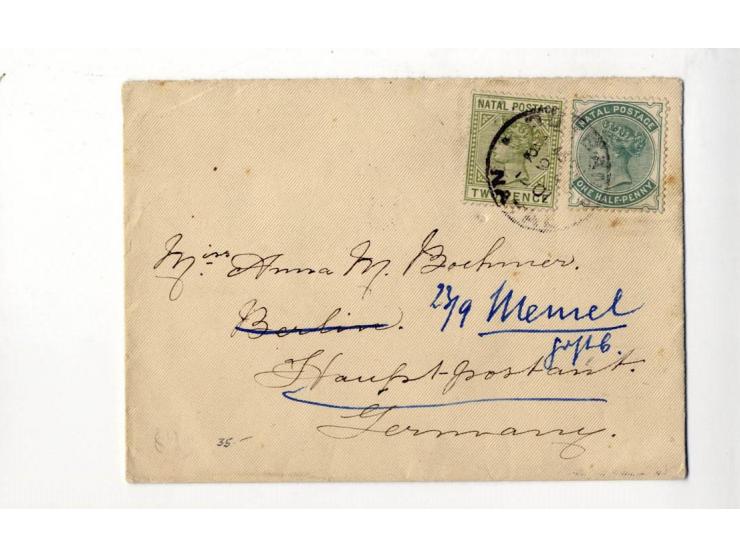 NATAL POSTAGE
TWO PENCE
NATAL POSTAGE
ONE HALF-PENNY
Miss Anna M. Boehmer.
Berlin. 23/9 Memel
Haupt-postamt.
Germany.
35-